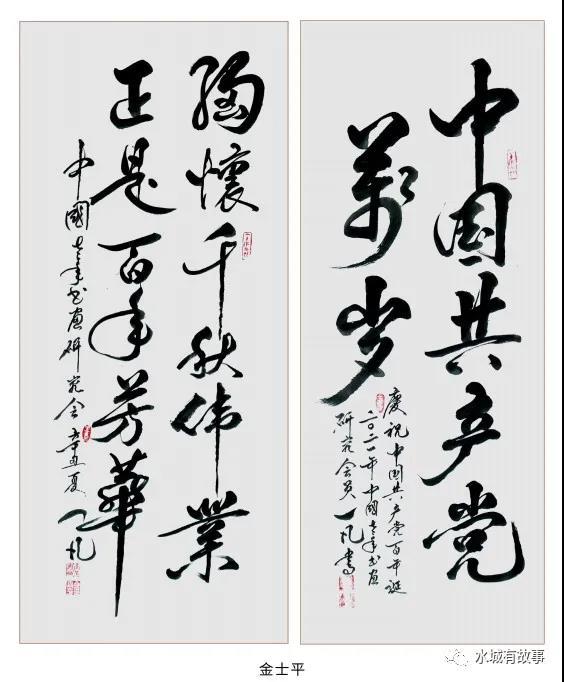 中国共产党
萬岁
慶祝中国共产党百年诞
二〇二一年中國老年书画
研究会员一凡书
胸懷千秋伟業
正是百年芳華
中國老年书画研究会辛丑夏一凡
金士平
水城有故事